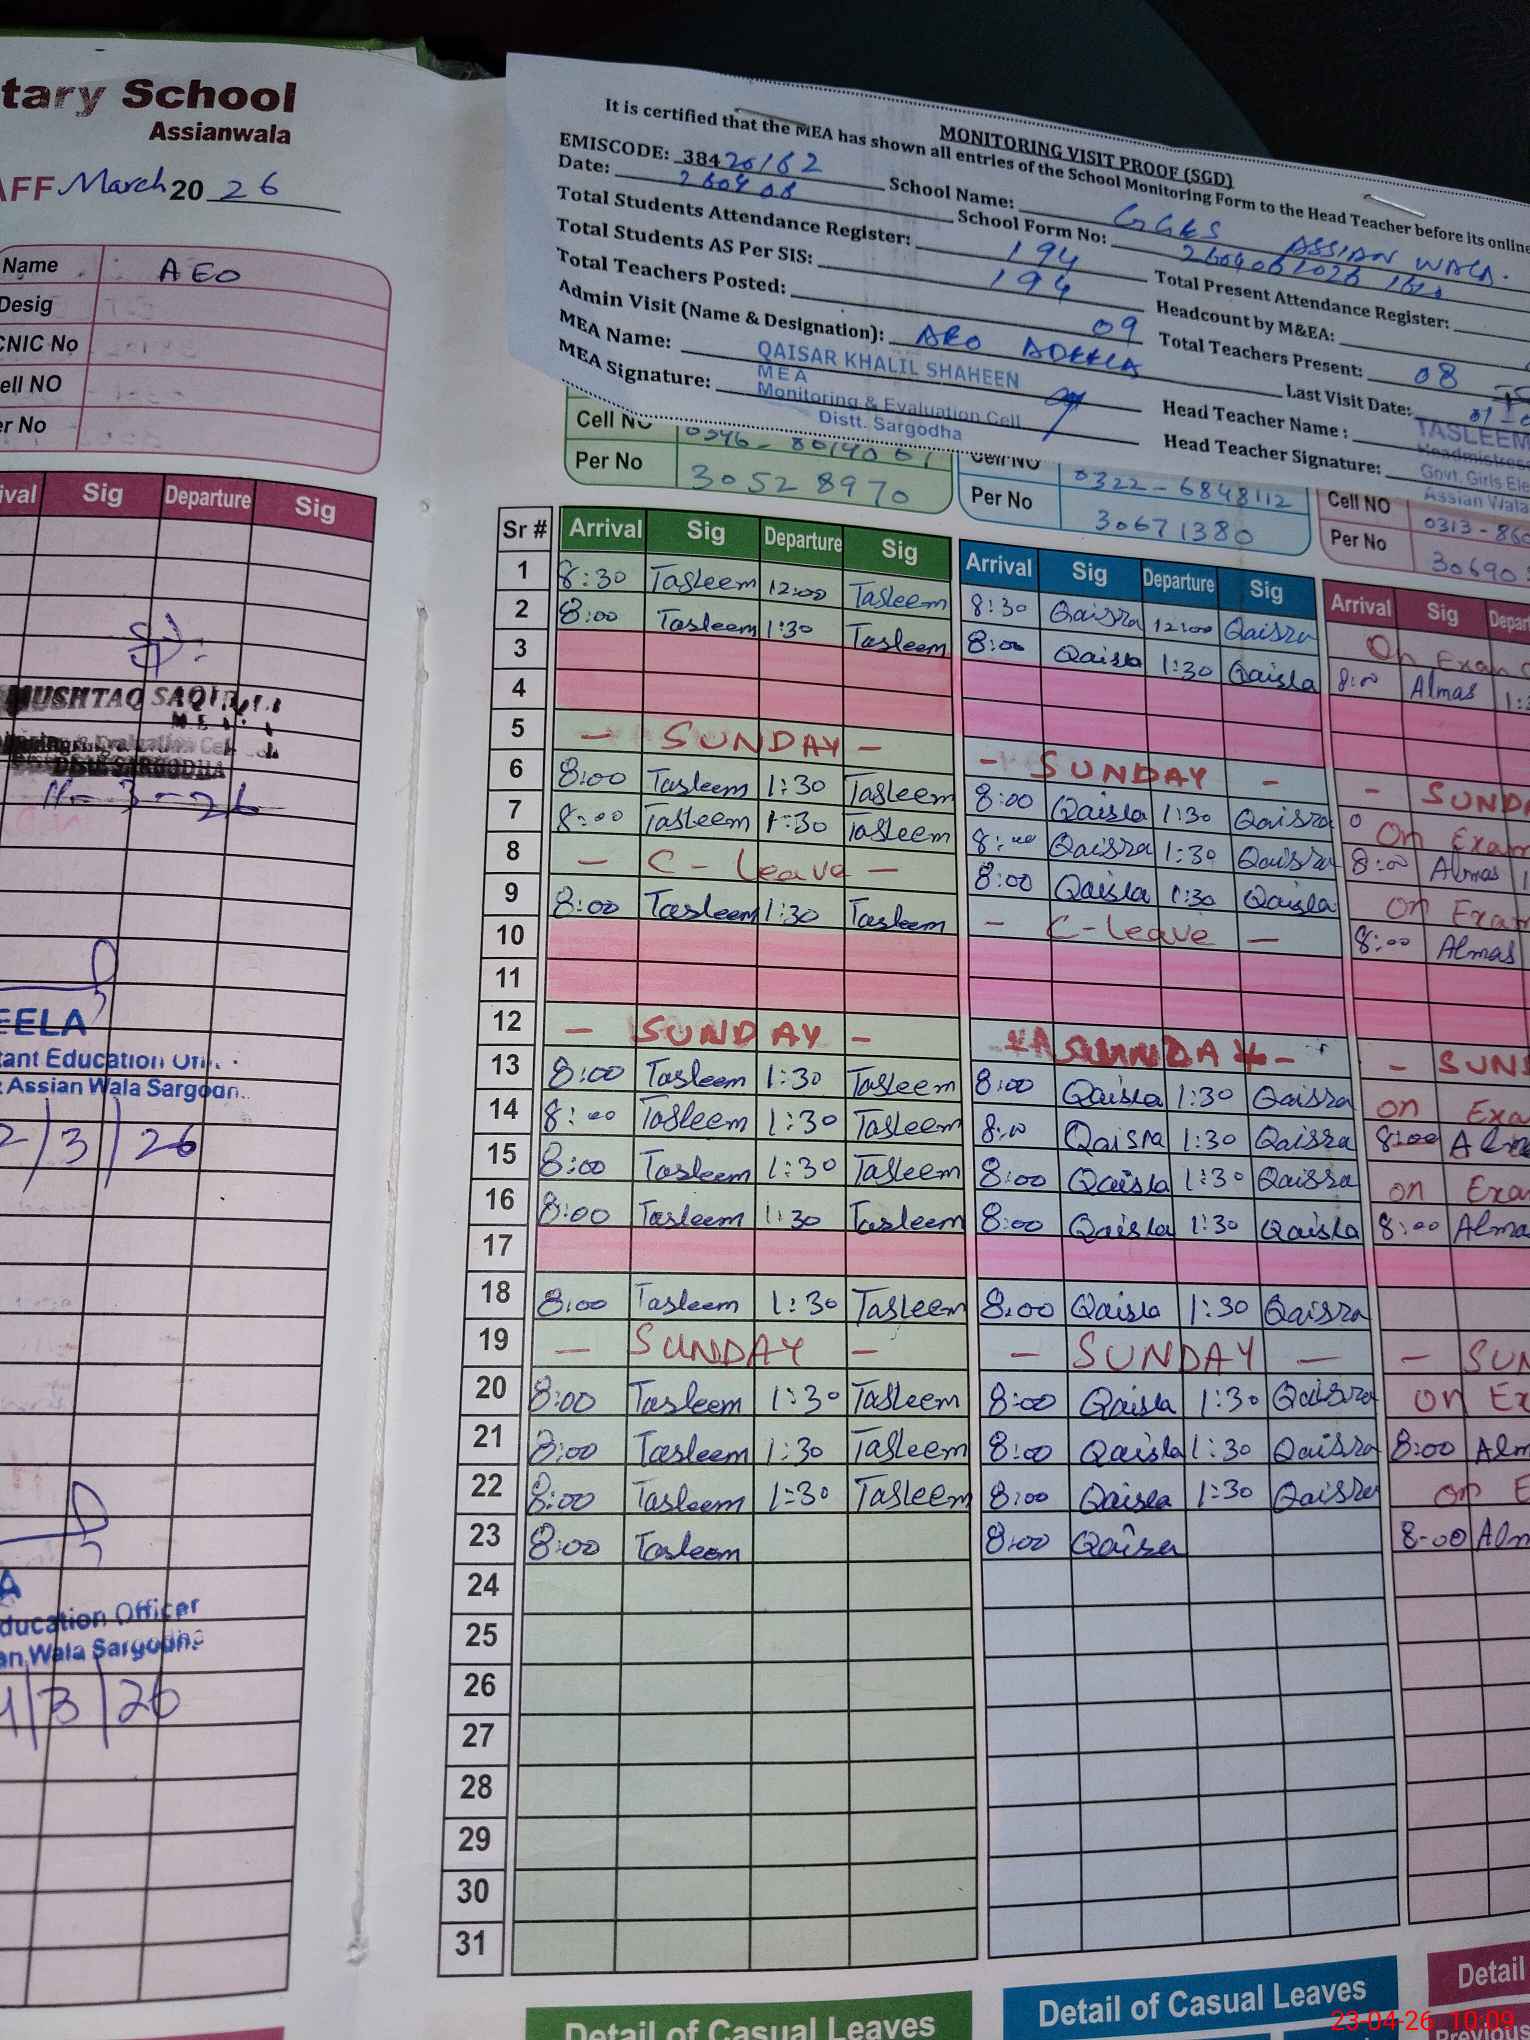 tary School
Assianwala
AFF March 20 26
Name AEO
Desig
CNIC No
ell NO
er No
ival Sig Departure Sig
MUSHTAQ SAQI
M E A
DISTT. SARGODHA
11-3-26
EELA
tant Education
Assian Wala Sargodh
2/3/26
A
ducation Officer
an Wala Sargodh
4/3/26
MONITORING VISIT PROOF (SGD)
It is certified that the MEA has shown all entries of the School Monitoring Form to the Head Teacher before its online
EMISCODE: 38420162 School Name: GGES ASSIAN WALA.
Date: 260408 School Form No:
Total Students Attendance Register: 194 Total Present Attendance Register:
Total Students AS Per SIS: 194 Headcount by M&EA:
Total Teachers Posted: 09 Total Teachers Present: 08
Admin Visit (Name & Designation): AEO ADEELA Last Visit Date:
MEA Name: QAISAR KHALIL SHAHEEN Head Teacher Name : TASLEEM
MEA
Monitoring & Evaluation Cell
Distt. Sargodha
MEA Signature: Head Teacher Signature:
Headmistress
Govt. Girls Ele
Assian Wala
Cell NO Cell NO 0322-6848112 Cell NO 0313-860
Per No 30528970 Per No 30671380 Per No 30690
Sr # Arrival Sig Departure Sig Arrival Sig Departure Sig Arrival Sig Depart
1 8:30 Tasleem 12:00 Tasleem 8:30 Qaisra 12:00 Qaisra On Exam
2 8:00 Tasleem 1:30 Tasleem 8:00 Qaisra 1:30 Qaisra 8:00 Almas
3
4
5 - SUNDAY - - SUNDAY - - SUND
6 8:00 Tasleem 1:30 Tasleem 8:00 Qaisra 1:30 Qaisra On Exam
7 8:00 Tasleem 1:30 Tasleem 8:00 Qaisra 1:30 Qaisra 8:00 Almas
8 - C-leave - 8:00 Qaisra 1:30 Qaisra on Exam
9 8:00 Tasleem 1:30 Tasleem - C-leave - 8:00 Almas
10
11
12 - SUNDAY - SUNDAY - - SUN
13 8:00 Tasleem 1:30 Tasleem 8:00 Qaisra 1:30 Qaisra on Exa
14 8:00 Tasleem 1:30 Tasleem 8:00 Qaisra 1:30 Qaisra 8:00 Alm
15 8:00 Tasleem 1:30 Tasleem 8:00 Qaisra 1:30 Qaisra on Exa
16 8:00 Tasleem 1:30 Tasleem 8:00 Qaisra 1:30 Qaisra 8:00 Alma
17
18 8:00 Tasleem 1:30 Tasleem 8:00 Qaisra 1:30 Qaisra
19 - SUNDAY - - SUNDAY - - SUN
20 8:00 Tasleem 1:30 Tasleem 8:00 Qaisra 1:30 Qaisra on Ex
21 8:00 Tasleem 1:30 Tasleem 8:00 Qaisra 1:30 Qaisra 8:00 Alm
22 8:00 Tasleem 1:30 Tasleem 8:00 Qaisra 1:30 Qaisra on E
23 8:00 Tasleem 8:00 Qaisra 8-00 Alm
24
25
26
27
28
29
30
31
Detail of Casual Leaves Detail of Casual Leaves Detail
Previous
23-04-26 10:09